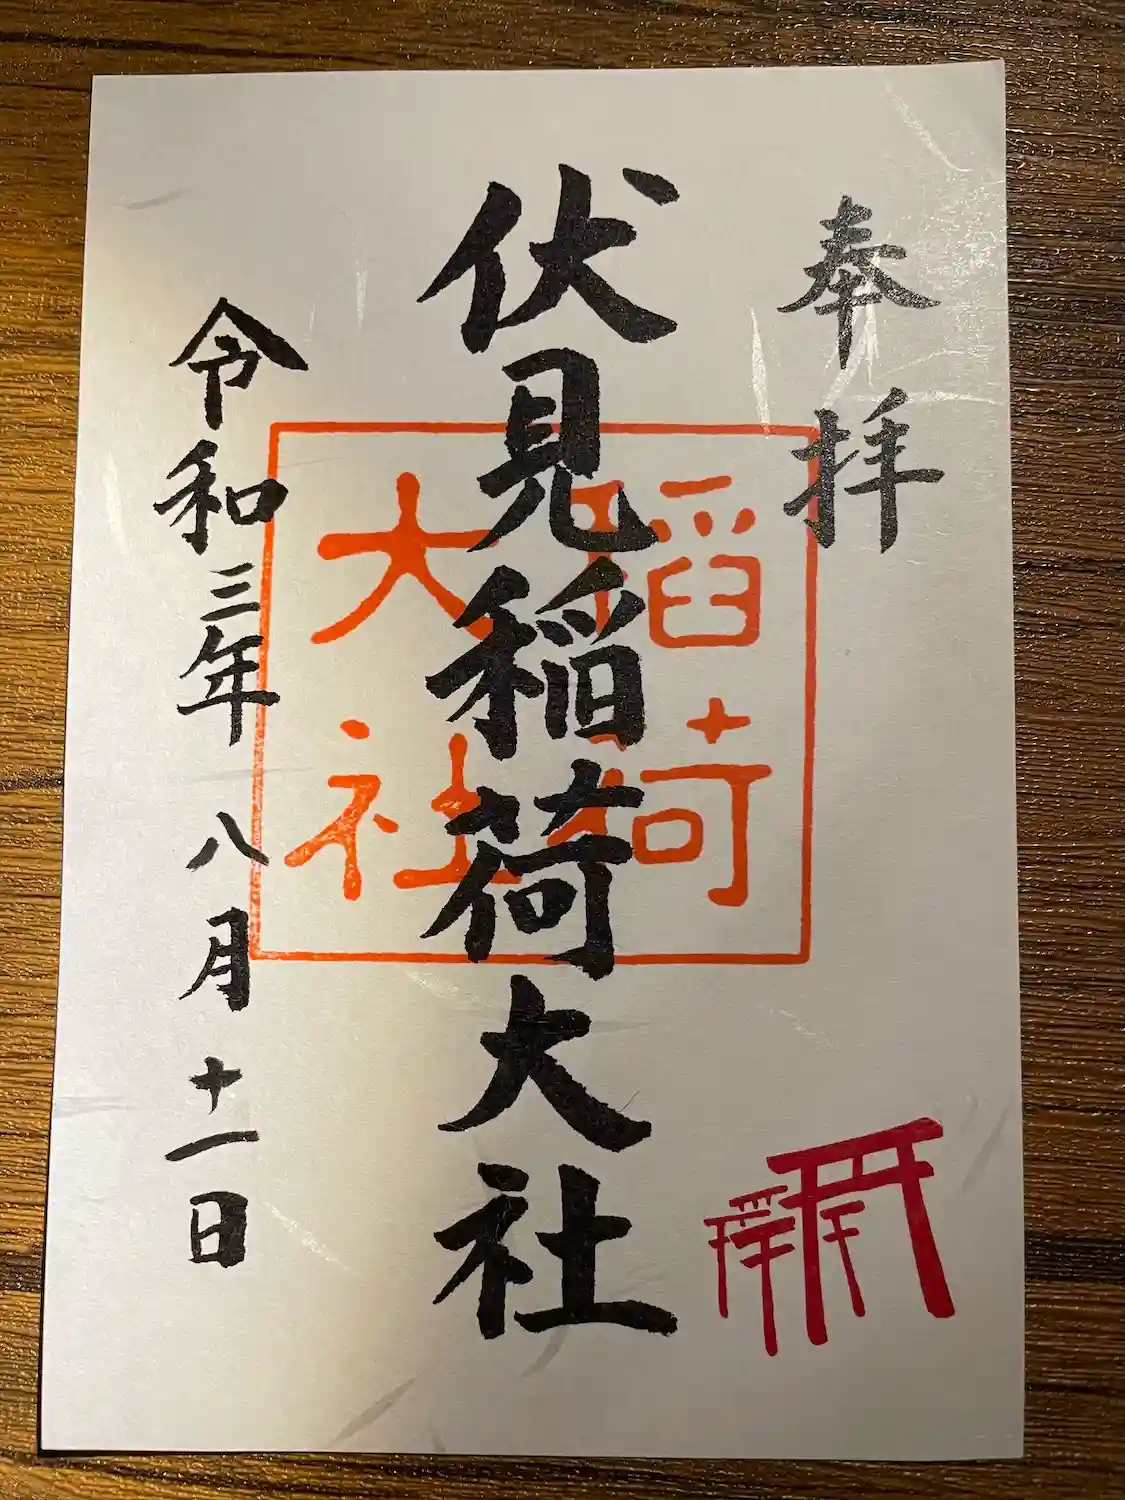 奉拝
伏見稲荷大社
稲荷
大社
令和三年八月十一日